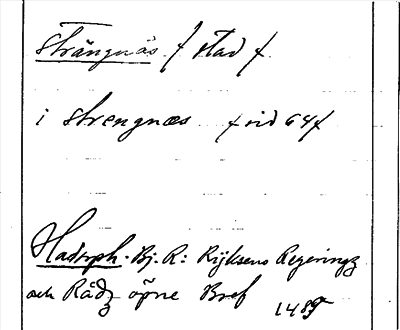 Strängnäs / stad /
i Strengnæs / sid 64 /
Hadorph. Bj. R: Rijksens Regeringz
och Rådz öpne Bref 1489